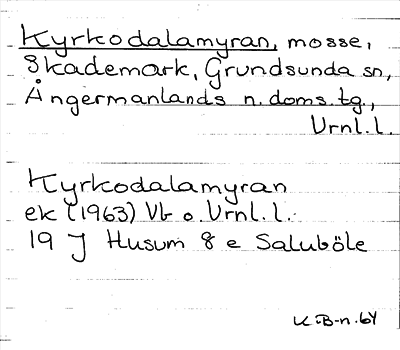 Kyrkodalamyran, mosse,
Skademark, Grundsunda sn,
Ångermanlands n. doms. tg.,
Vrnl. l.
Kyrkodalamyran
ek (1963) Vb o. Vrnl. l.
19 J Husum 8 e Saluböle
K B-n. 64